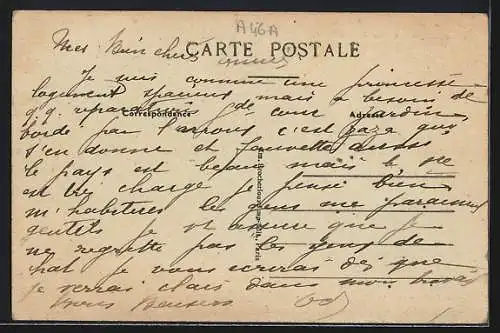 A46A
CARTE POSTALE
Mes Bien chers amies
Je suis comme une princesse
logement spacieux mais a besoin de
qq. reparations de cour jardin
Correspondance
Adresse
bordé par l'arroux c'est gaza qui
s'en donne et Fauvette aussi
le pays est beau mais la vie
est très chargé je pense bien
m'habituer les gens me paraissent
gentils je t'assure que je
ne regrette pas les gens de
chat je vous ecrirai dès que
je verrai clair dans mon
bons Baisers